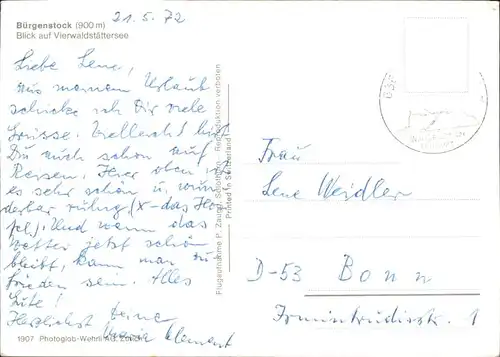 Bürgenstock (900 m)
Blick auf Vierwaldstättersee
21.5.72
Liebe Lene,
aus meinem Urlaub
schicke ich Dir viele
Grüsse. Vielleicht bist
Du auch schon auf
Reisen. Hier oben ist
es sehr schön u. wun
derbar ruhig (X - das Ho
). Und wenn das
Wetter jetzt schön
bleibt, kann man zu
frieden sein. Alles
Gute!
Herzlichst Deine
Maria Klement
1907 Photoglob-Wehrli AG, Zürich
Flugaufnahme P. Zaugg, Solothurn Reproduktion verboten
Printed in Switzerland
Frau
Lene Weidler
D-53 Bonn
Irmintrudisstr. 1